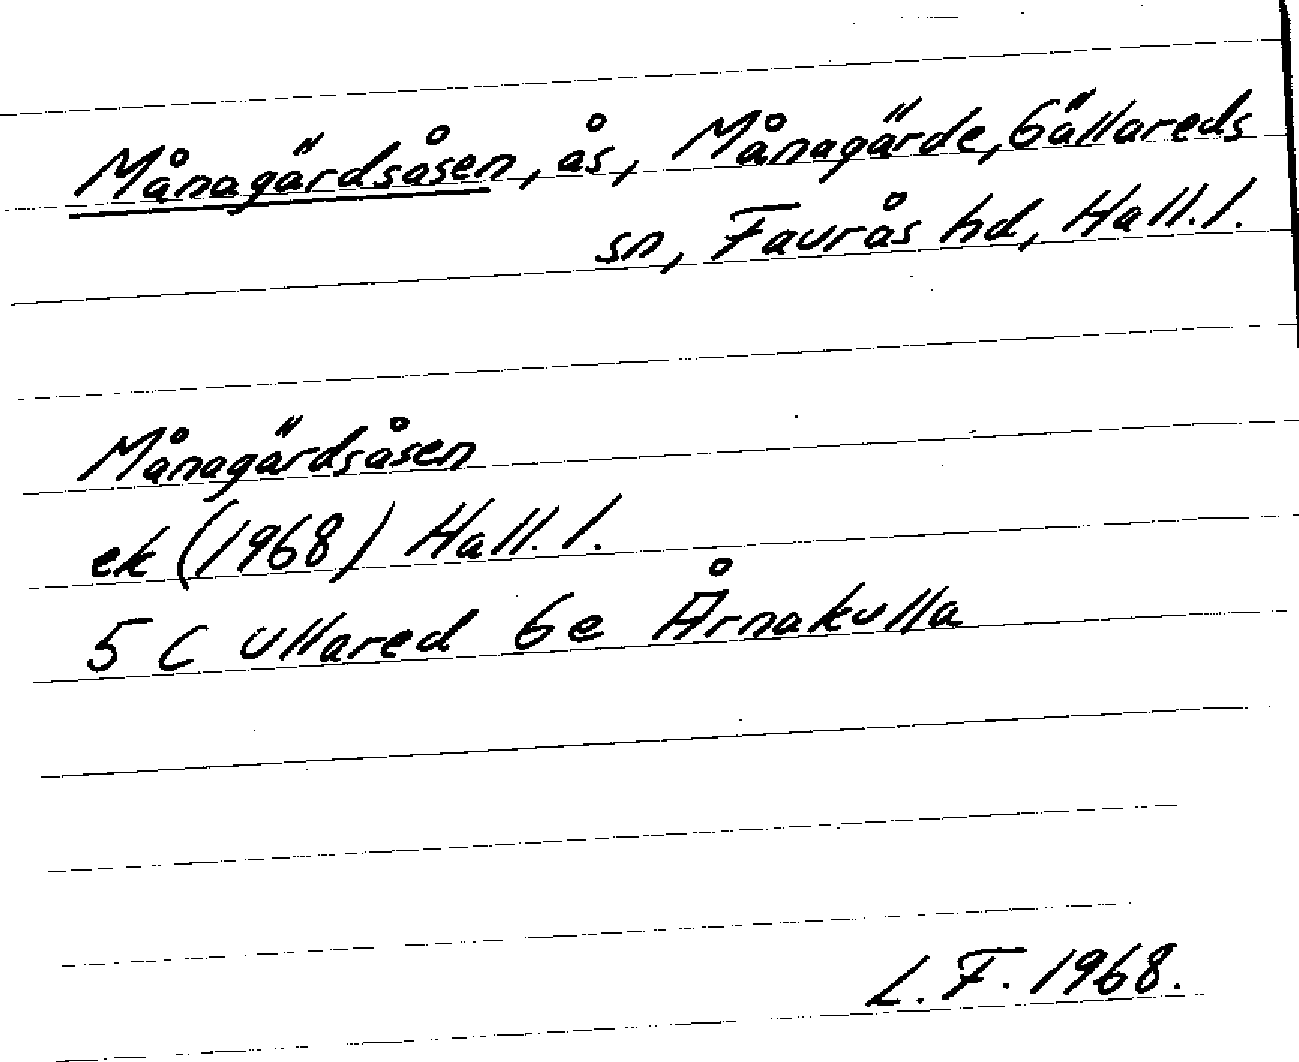 Månagärdsåsen, ås, Månagärde, Gällareds
sn, Faurås hd, Hall. l.
Månagärdsåsen
ek (1968) Hall. l.
5 C Ullared 6e Årnakulla
L. F. 1968.